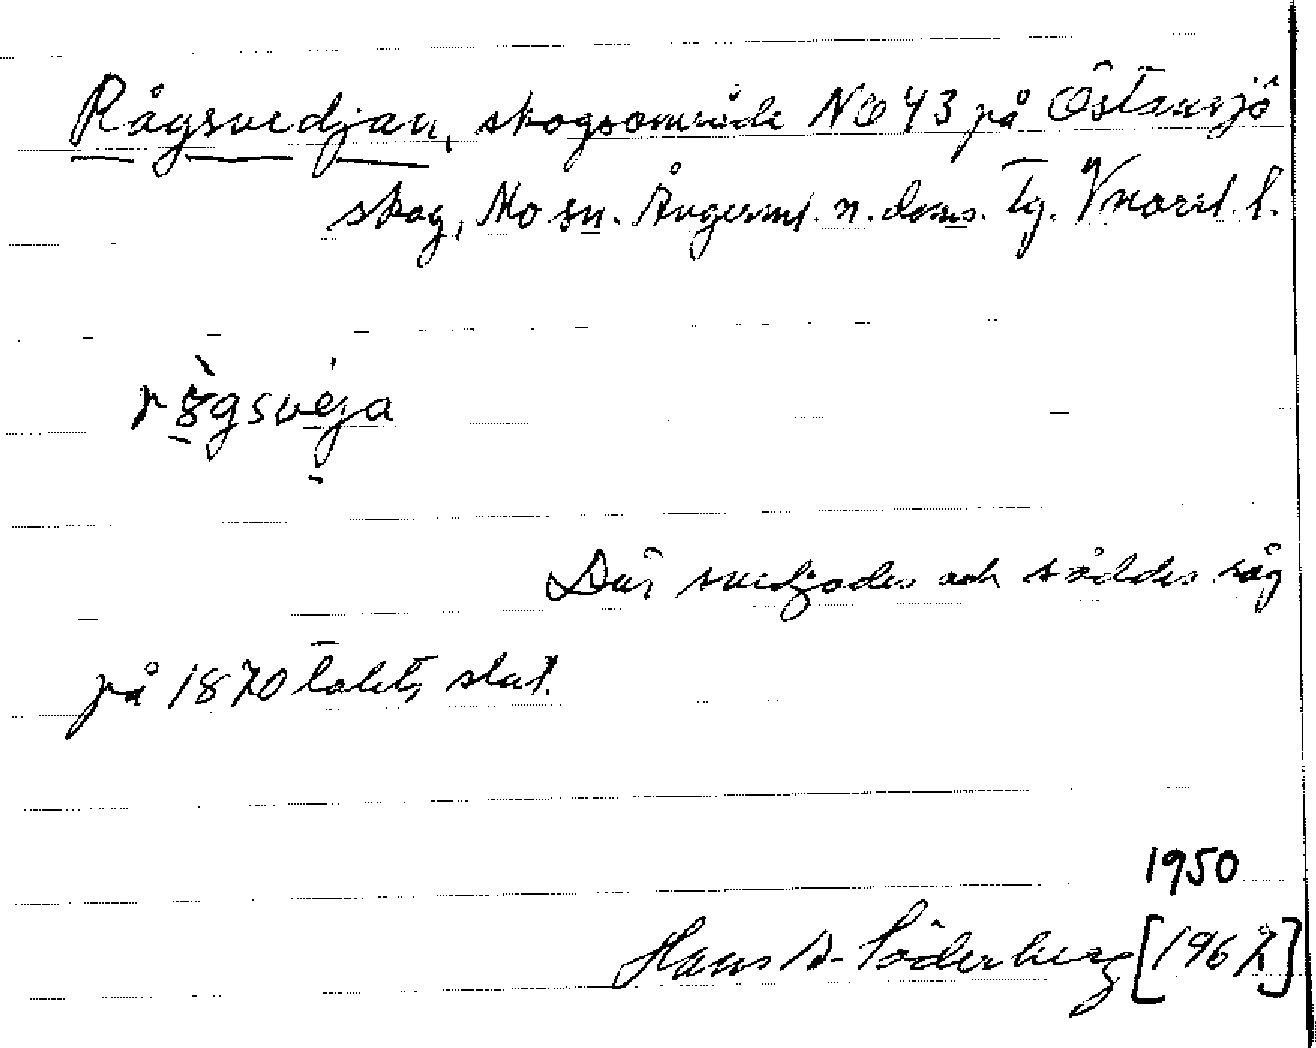 Rågsvedjan, skogsområde NO 43 på Östansjö
skog, Mo sn. Ångerml. n. doms. tg. Vnorrl. l.
rågsveja
Där svedjades och såddes råg
på 1870 talets slut.
1950
Hans A. Söderberg [1967]